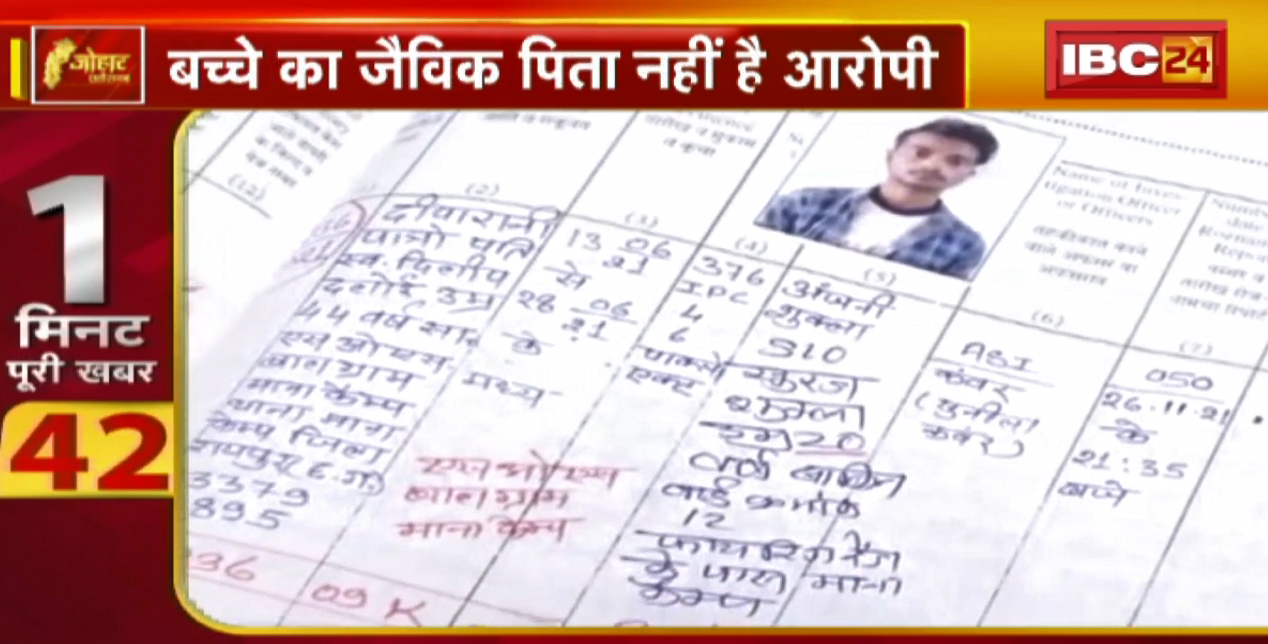 जोहार
छत्तीसगढ़
बच्चे का जैविक पिता नहीं है आरोपी
IBC24
1
मिनट
पूरी खबर
42
(12)
(2)
(3)
(4)
(5)
(6)
(7)
Name of Inves-
tigation Officer
or Officers
पात्रो पति
स्व. दिलीप
उम्र
44 वर्ष
एस ओ एस
बाल ग्राम
माना कैम्प
थाना माना
कैम्प जिला
रायपुर (छ.ग.)
3379
895
13 06
21
से
28 06
21
के
मध्य
एस ओ एस
बाल ग्राम
माना कैम्प
376
IPC
4
6
पाक्सो
एक्ट
अंजनी
शुक्ला
S/O
सूरज
शुक्ला
उम्र 20
वार्ड क्रमांक
12
फायरिंग रेंज
के पास माना
कैम्प
ASI
कंवर
(सुनीला
कंवर)
050
26.11.21
के
21:35
बजे
36
09 K